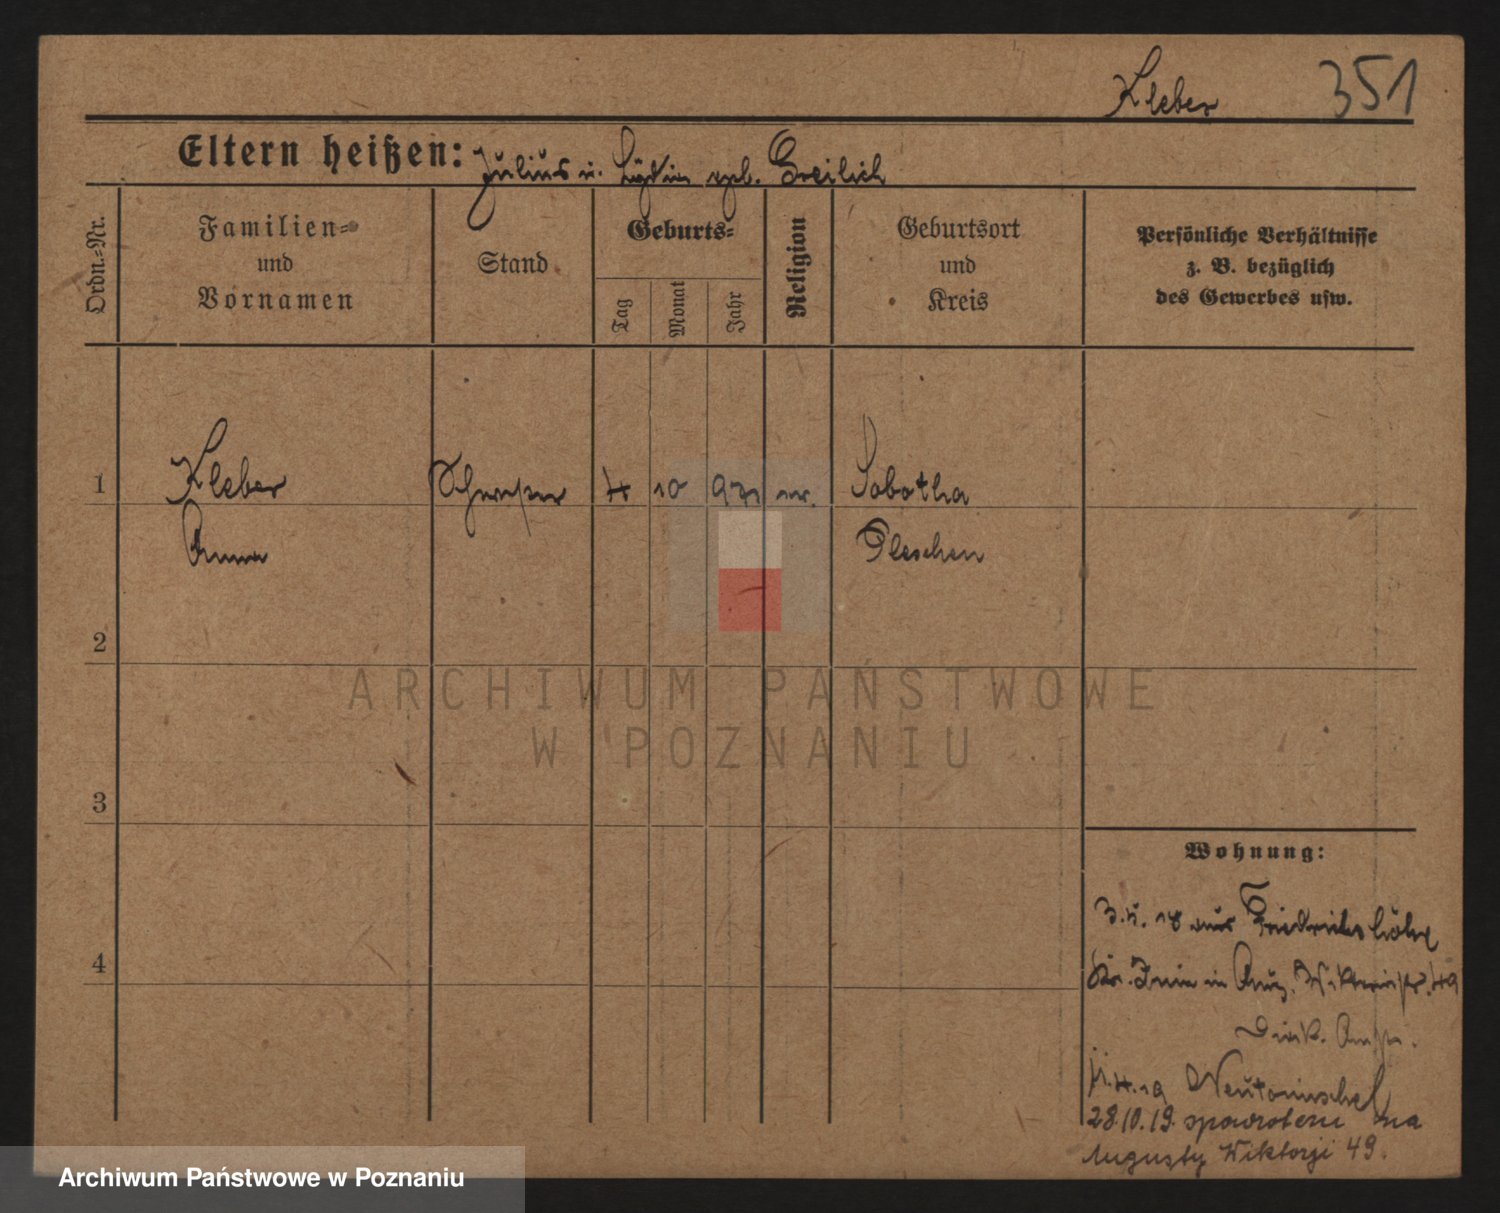 Kleber 351
Eltern heißen: Julius u. geb. Freilich
Ordn.-Nr.
Familien-
und
Vornamen
Stand
Geburts-
Tag
Monat
Jahr
Religion
Geburtsort
und
Kreis
Persönliche Verhältnisse
z. B. bezüglich
des Gewerbes usw.
1
Kleber 4 10 Sobotha
Anna Pleschen
2
ARCHIWUM PAŃSTWOWE
W POZNANIU
3
Wohnung:
aus Friedrichshöhe
4
in Aug. 49
Neutomischel
28.10.19. spowrotem na
Augusty Wiktorji 49.
Archiwum Państwowe w Poznaniu